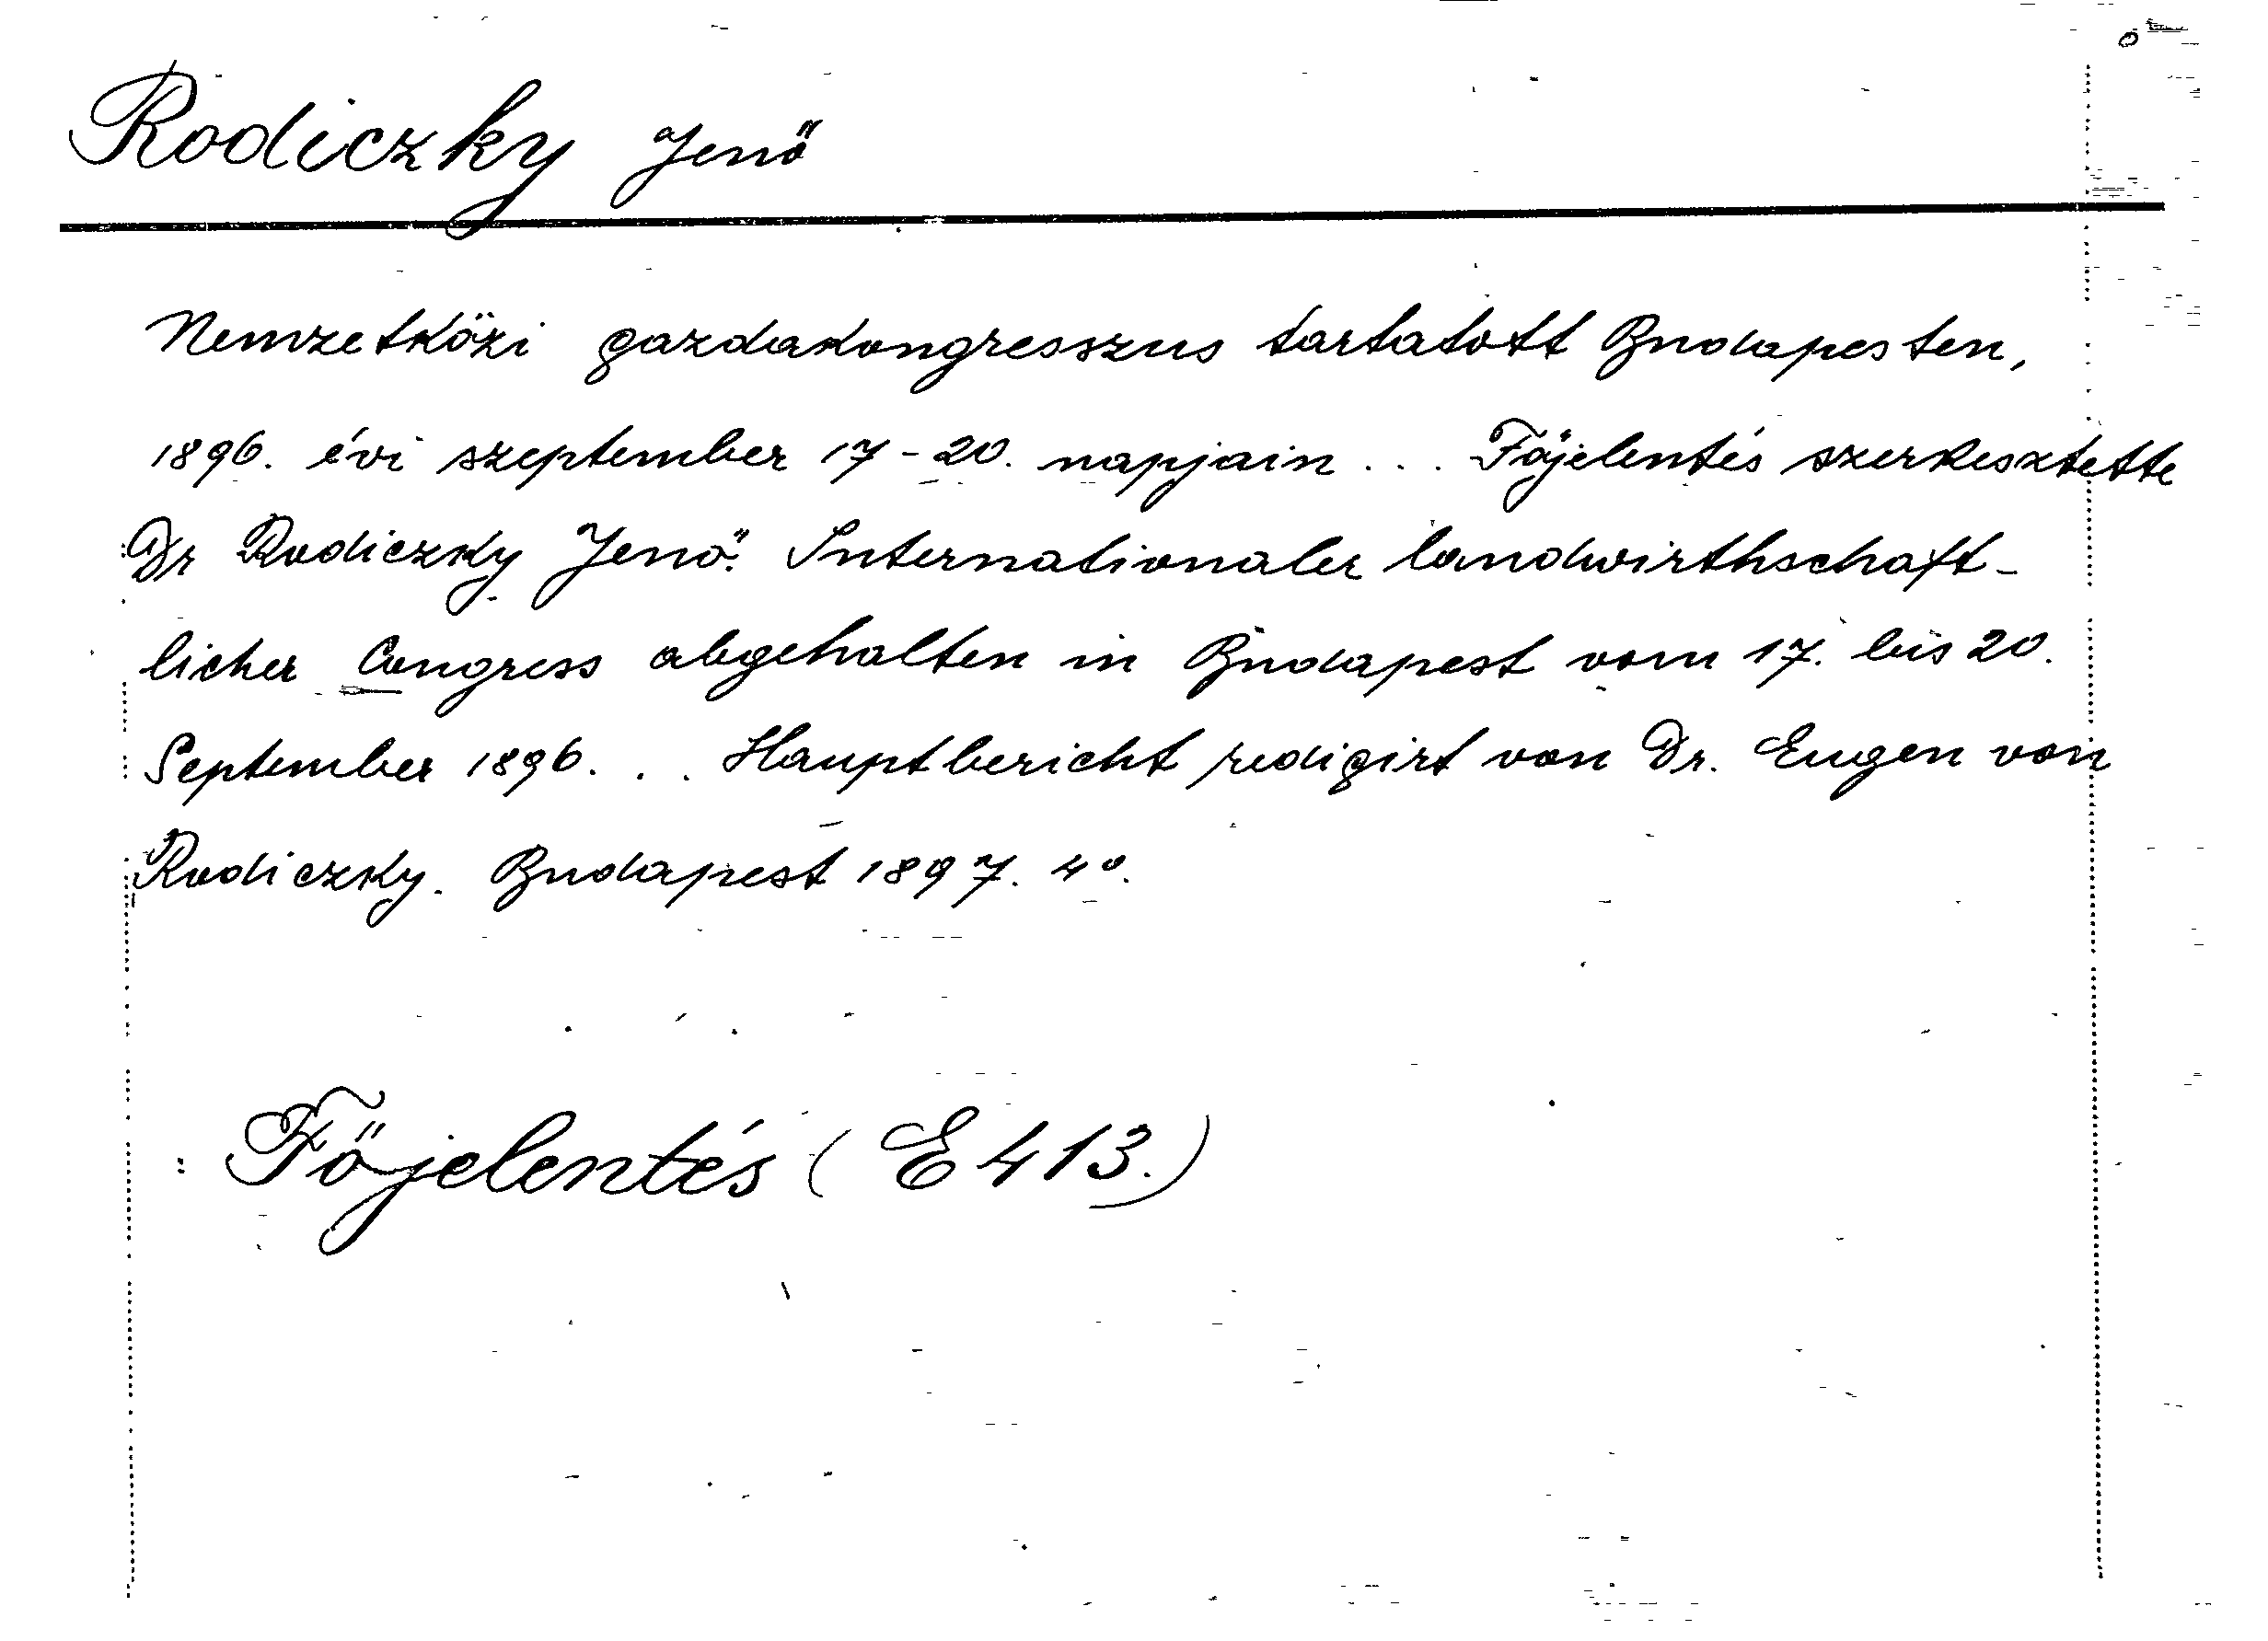 Rodiczky Jenő
Nemzetközi gazdakongresszus tartatott Budapesten,
1896. évi szeptember 17-20. napjain... Főjelentés szerkesztette
Dr Rodiczky Jenő. Internationaler landwirthschaft-
licher Congress abgehalten in Budapest vom 17. bis 20.
September 1896... Hauptbericht redigirt von Dr. Eugen von
Rodiczky. Budapest 1897. 4°.
Főjelentés (E 413.)